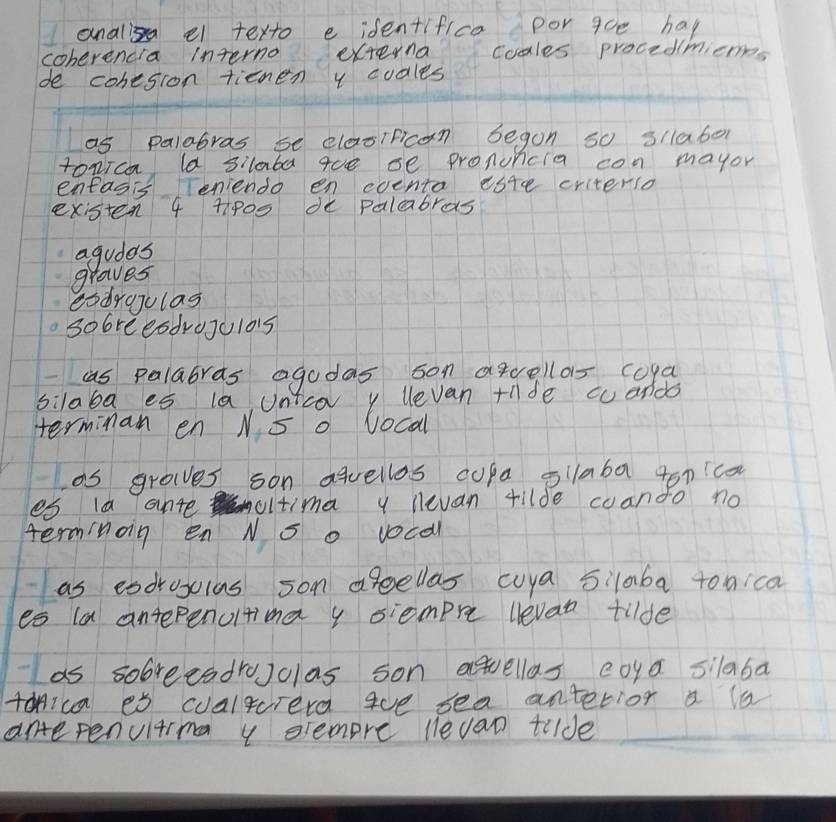 1 analisa el texto e identifica por que hay
coherencia interno externa cuales procedimientos
de cohesion tienen y cuales
Las palabras se clasifican segun su silaba
tonica, la silaba que se pronuncia con mayor
enfasis Teniendo en cuenta este criterio
existen 4 tipos de palabras
• agudas
• graves
• esdrujulas
• sobreesdrujulas
- Las palabras agudas son aquellas cuya
silaba es la unica y llevan tilde cuando
terminan en N, S o Vocal
- Las graves son aquellas cuya silaba tonica
es la ante ultima y llevan tilde cuando no
terminan en N S o vocal
- Las esdrujulas son aquellas cuya silaba tonica
es la antepenultima y siempre llevan tilde
- Las sobreesdrujulas son aquellas cuya silaba
tonica es cualquiera que sea anterior a la
antepenultima y siempre llevan tilde